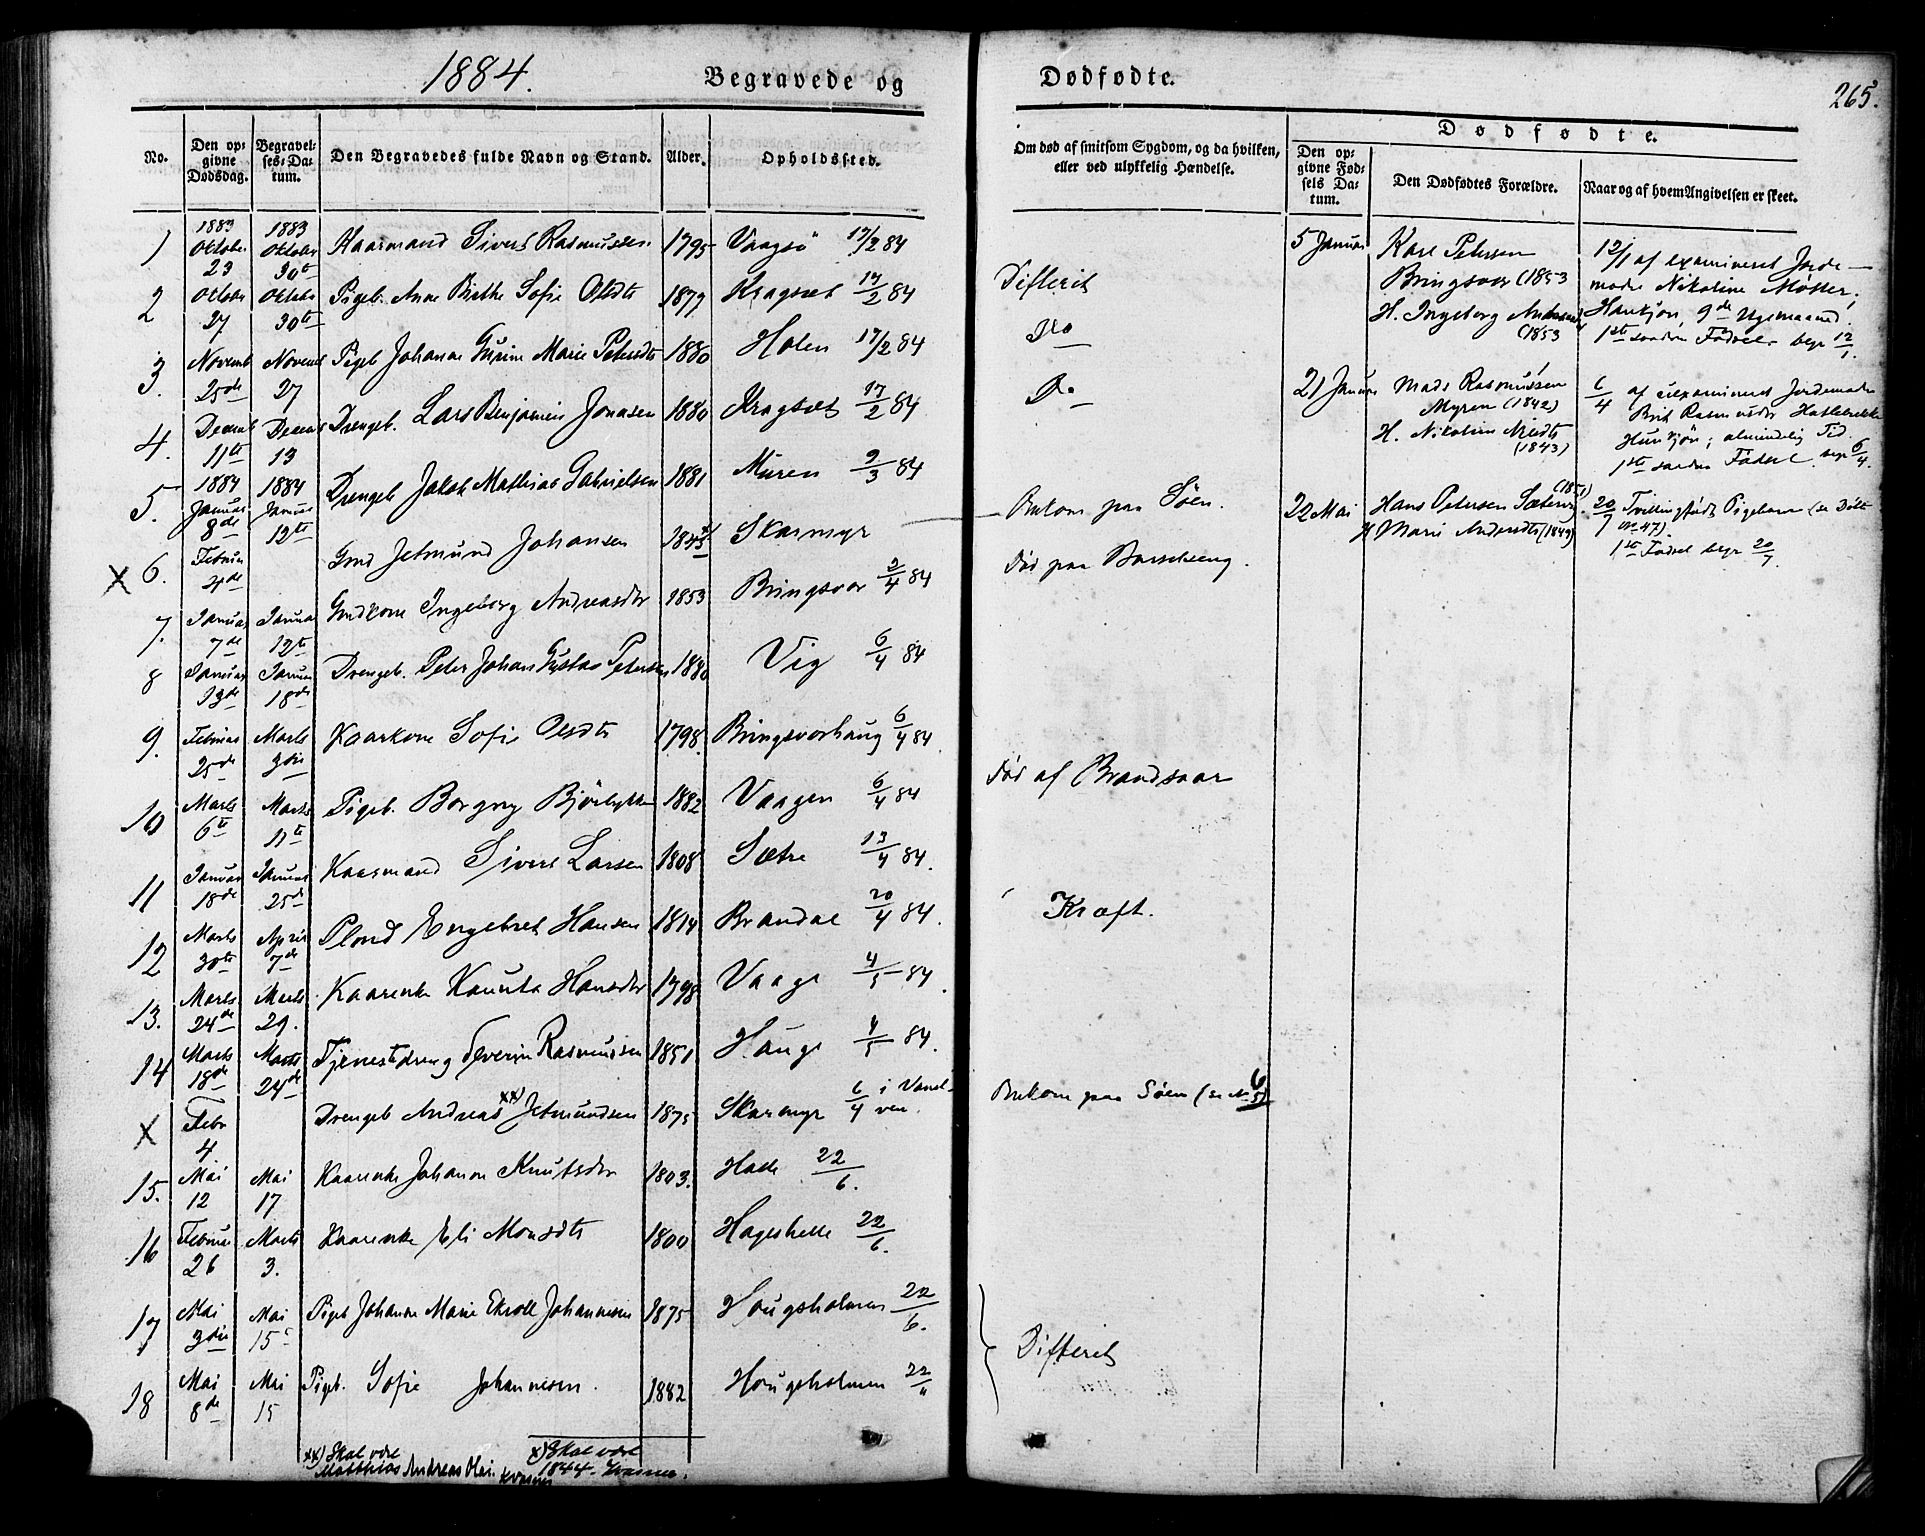 1884. Begravede og
Dødfødte.
265.
No.
Den opgivne Dødsdag.
Begravelses-Datum.
Den Begravedes fulde Navn og Stand.
Alder.
Opholdssted.
Om død af smitsom Sygdom, og da hvilken, eller ved ulykkelig Hændelse.
Dødfødte.
Den opgivne Fødsels Datum.
Den Dødfødtes Forældre.
Naar og af hvem Angivelsen er skeet.
1 1883 October 23 1883 October 30te Kaarmand Sivert Rasmussen 1795 Vaagsø 17/2 84
2 October 27 October 30te Pigeb. Anne Birthe Sofie Olsdtr 1879 Kragset 17/2 84 Difterit
3. Novemb 25de Novemb 27 Pigeb Johanne Gurine Marie Petersdtr 1880 Holen 17/2 84 Do
4. Decemb 11te Decemb 13 Drengeb. Lars Benjamin Jonasen 1880 Kragset 17/2 84 Do
5. 1884 Januar 8de 1884 Januar 12te Drengeb Jakob Mathias Gabrielsen 1881 Muren 9/3 84
X 6. Februar 4de Gmd Jetmund Johansen 1843 x Skarmyr Omkom paa Søen.
7. Januar 7de Januar 12te Gmdkone Ingeborg Andreasdtr 1853 Bringsvor 2/4 84 Død paa Barselseng.
8 Januar 13de Januar 18de Drengeb. Peter Johan Gustav Petersen 1880 Vig 6/4 84
9. Februar 25de Marts 3die Kaarkone Sofie Olsdtr 1798. Bringsvorhaug 6/4 84.
10 Marts 6te Marts 11te Pigeb. Borgny Bjørlykke 1882 Vaagen 6/4 84 Død af Brandsaar
11 Januar 18de Januar 25de Kaarmand Sivert Larsen 1808 Sætre 13/4 84.
12 Marts 30te April 7de Engebret Hansen 1814 Brandal 20/4 84. Kræft.
13. Marts 24de Marts 29. Kaarenke Knuta Hansdtr 1798 Vaage 4/5 84.
14 Marts 18de Marts 24de Tjenestedreng Severin Rasmussen 1851 Hauge 4/5 84.
X Febr 4 Drengeb Andreas xx) Jetmundsen 1875 Skarmyr 6/4 i Vanelven. Omkom paa Søen (se No 6)
15. Mai 12 Mai 17 Kaarenke Johanne Knutsdtr 1803. Hade 22/6.
16 Februar 26 Marts 3. Kaarenke Eli Monsdtr 1800 Hageshelle 22/6.
17 Mai 3die Mai 15 Pigeb Johanne Marie Ekroll Johannesen 1875 Hougsholmen 22/6. Difterit
18 Mai 8de Mai 15 Pigeb. Sofie Johannesen. 1882 Hougsholmen 22/"
xx) Skal være
Matthias Andreas Olai.
x) Skal være
1844.
5 Januar Karl Petersen
Bringsvor (1853
H. Ingeborg Andreasd
(1853
12/1 af examineret Jorde-
moder Nikoline Møller;
Hankjøn 9de Ugemaaned.
1ste Fødsel. begr 12/1.
21 Januar Mads Rasmussen
Myren (1842)
H. Nikoline Nilsdtr
(1843)
6/4 af uexamineret Jordemoder
Brit Rasmusdtr
Hunkjøn; almindelig Tid.
1ste Fødsel begr 6/4.
22 Mai Hans Petersen Sætervig (1851)
H Marie Andersdtr (1849)
20/7 Tvillingfødt Pigebarn (se Døbt
no 47).
1ste Fødsel begr 20/7